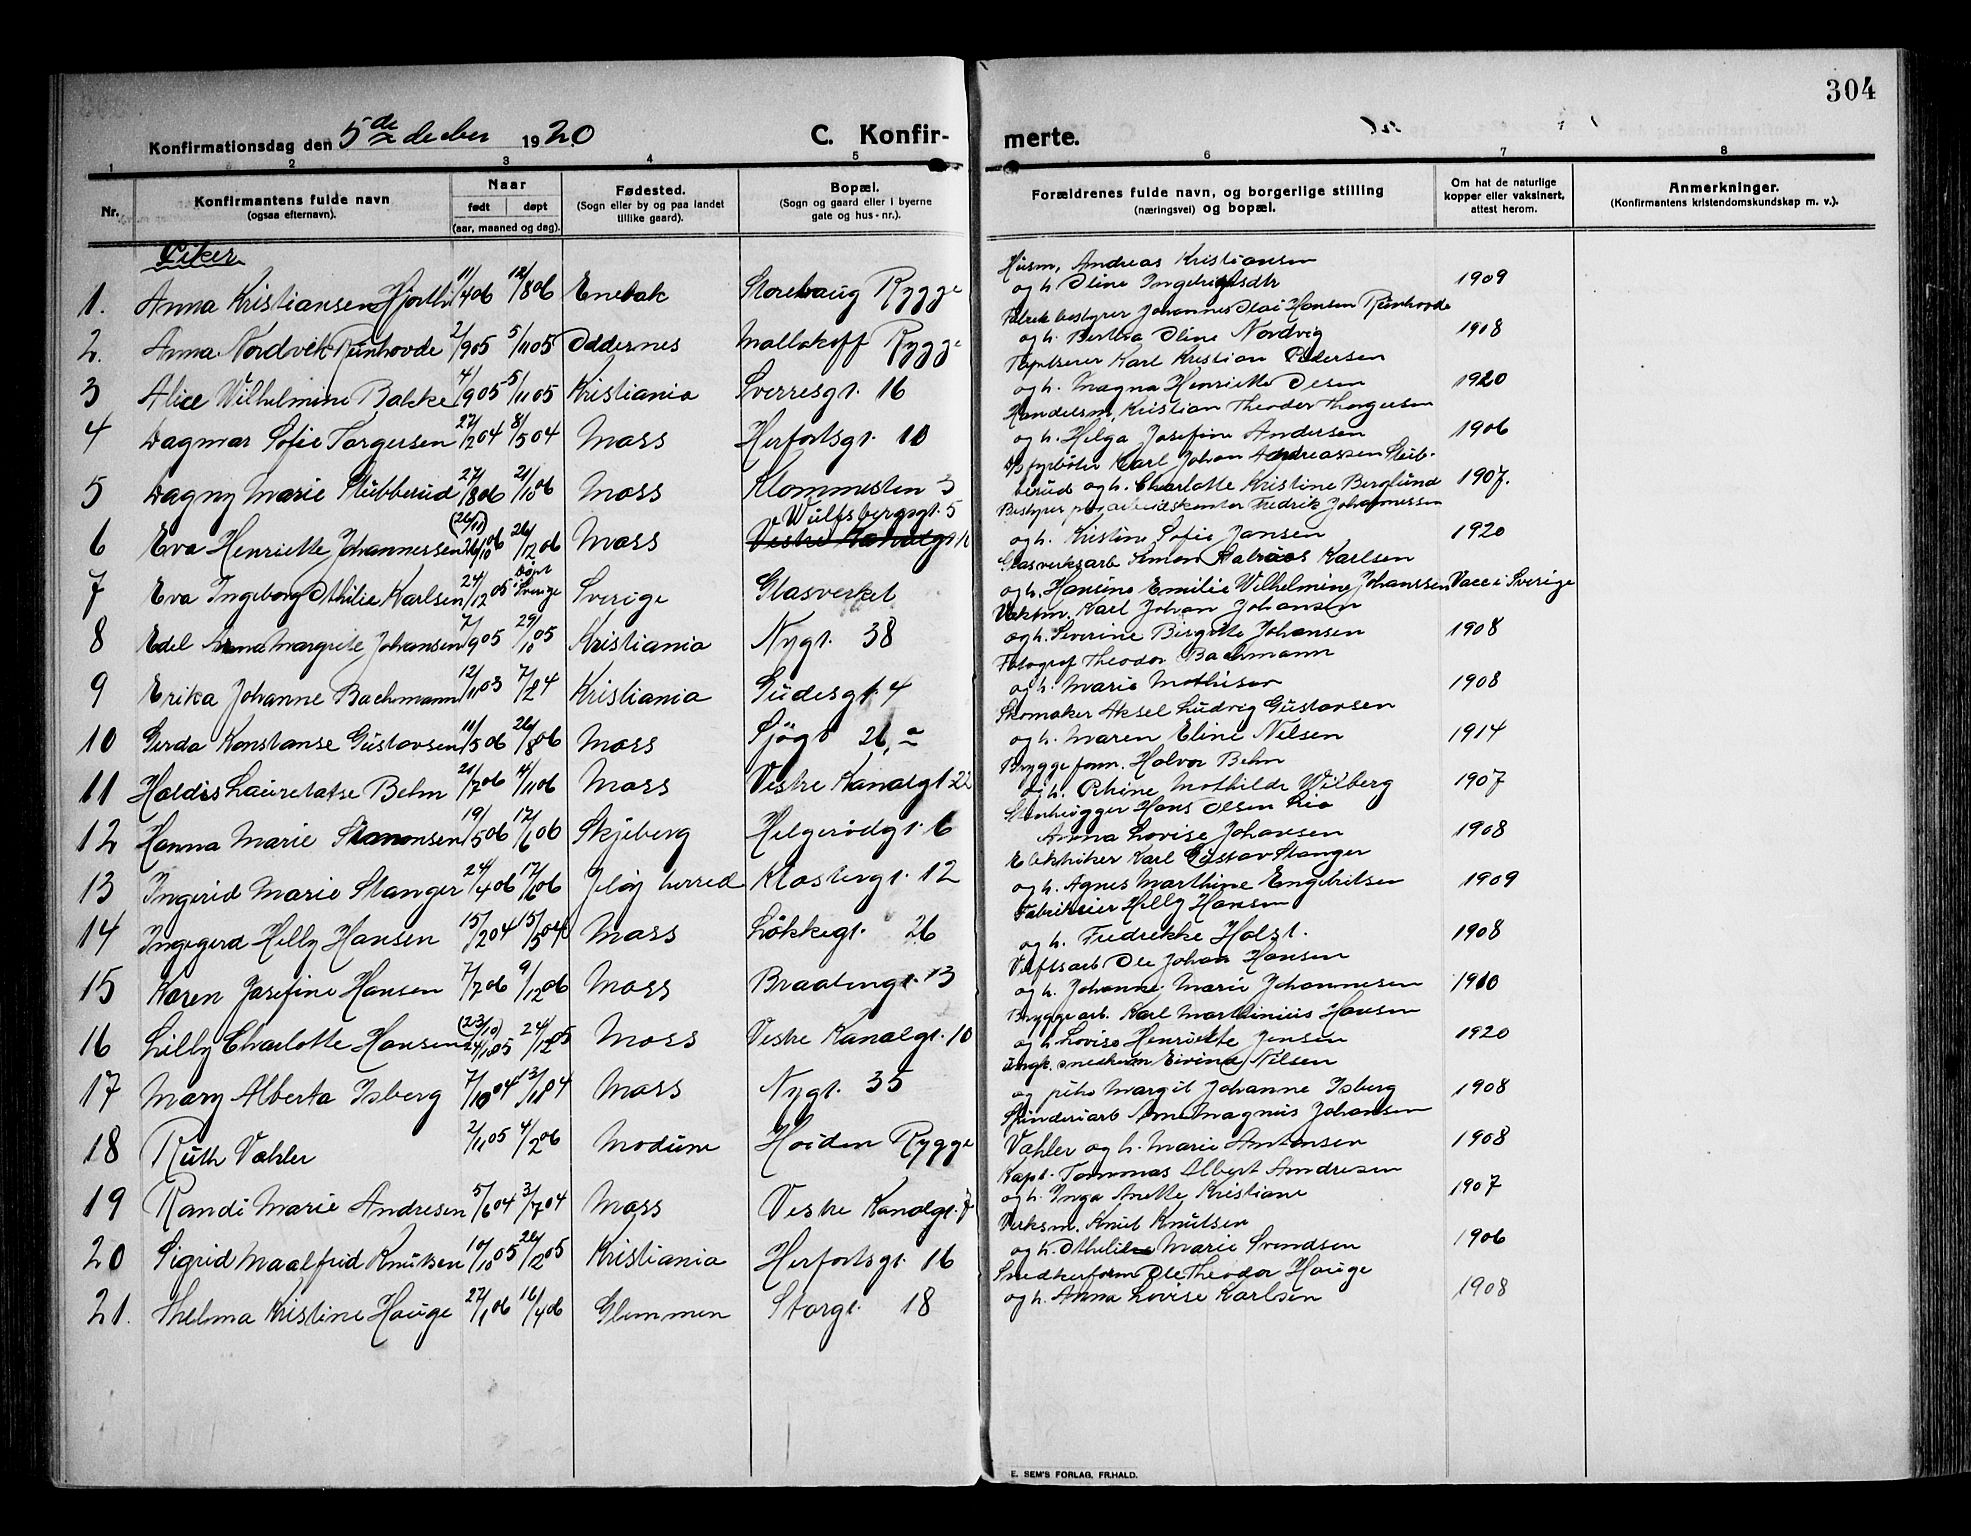 304
Konfirmationsdag den 5de decber 1920
C. Konfirmerte.
1 2 3 4 5 6 7 8
Nr.
Konfirmantens fulde navn (ogsaa efternavn).
Naar født døpt (aar, maaned og dag).
Fødested. (Sogn eller by og paa landet tillike gaard).
Bopæl. (Sogn og gaard eller i byerne gate og hus-nr.).
Forældrenes fulde navn, og borgerlige stilling (næringsvei) og bopæl.
Om hat de naturlige kopper eller vaksinert, attest herom.
Anmerkninger. (Konfirmantens kristendomskundskap m. v.).
Piker
1. Anna Kristiansen Hjorth 11/4 06 12/8 06 Enebak Storehaug Rygge
Husm. Andreas Kristiansen
og h. Oline Ingebrigtsdtr 1909
2. Anna Nordvik Runhovde 2/9 05 5/11 05 Oddernes Mallakoff Rygge
Fabrik bestyrer Johannes Olai Hansen Runhovde
og h. Bertha Oline Nordvig 1908
3 Alice Wilhelmine Bakke 4/9 05 5/11 05 Kristiania Sverresgt. 16
Tapetserer Karl Kristian Pedersen
og h. Magna Henriette Olsen 1920
4 Dagmar Sofie Torgersen 27/2 04 8/5 04 Moss Herfortsgt. 10
Handelsm. Kristian Theodor Thorgersen
og h. Helga Josefine Andersen 1906
5 Dagny Marie Stubberud 27/8 06 21/10 06 Moss Klommesten 3
D/S fyrbøter Karl Johan Andreassen Stub-
berud og h. Charlotte Kristine Berglund 1907.
6 Eva Henriette Johannessen (26/11) 26/10 06 26/12 06 Moss v Wulfsbergsgt. 5
Vestre Kanalgt 10
Bestyrer paa arbeidskontor Fredrik Johannessen
og h. Kristine Sofie Jansen 1920
7 Eva Ingeborg Othilie Karlsen 24/12 05 døpt i Sverige Sverige Glasverket
Glasverksarb Simon Karlsen
og h. Hansine Emilie Wilhelmine Johanssen Vacc i Sverige
8 Edel Anna Margrete Johansen 7/9 05 29/10 05 Kristiania Nygt. 38
Verksm. Karl Johan Johansen
og h. Severine Birgitte Johansen 1908
9 Erika Johanne Bachmann 12/11 03 7/2 4 Kristiania Gudesgt. 4
Fotograf Theodor Bachmann
og h. Marie Mathisen 1908
10 Gerda Konstanse Gustavsen 11/5 06 26/8 06 Moss Sjøgt 26, a
Skomaker Aksel Ludvig Gustavsen
og h. Maren Eline Nilsen 1914
11 Haldis Lauretatse Behm 21/7 06 4/11 06 Moss Vestre Kanalgt 22
Bryggeform. Halvor Behm
og h. Rhine Mathilde Wilberg 1907
12 Hanna Marie Simonsen 19/5 06 17/6 06 Skjeberg Helgerødgt. 6
Stenhugger Hans Olsen Lia
Anna Lovise Johansen 1908
13 Ingerid Marie Stanger 24/4 06 17/6 06 Jeløy herred Klostergt. 12
Elektriker Karl Gustav Stanger
og h. Agnes Marthine Engebritsen 1909
14 Ingegerd Helly Hansen 15/2 04 15/5 04 Moss Løkkegt. 26
Fabrikeier Helly Hansen
og h. Fredrekke Holst. 1908
15 Karen Josefine Hansen 7/7 06 9/12 06 Moss Braatengt. 13
Verftsarb Ole Johan Hansen
og h. Johanne Marie Johannesen 1910
16 Lilly Charlotte Hansen (23/10) 24/10 05 24/12 05 Moss Vestre Kanalgt. 10
Bryggearb. Karl Marthinius Hansen
og h. Lovise Henriette Jensen 1920
17 Mary Alberta Isberg 7/10 04 13/11 04 Moss Nygt. 35
Ungk. snedker Eivind Nilsen
og pike Margit Johanne Isberg 1908
18 Ruth Vahler 2/11 05 4/2 06 Modum Hoiden Rygge
Spinderiarb Arne Magnus Johansen
Vahler og h. Marie Antonsen 1908
19 Randi Marie Andresen 5/6 04 3/7 04 Moss Vestre Kanalgt. 7
Kapt. Tommas Albert Andresen
og h. Inga Anette Kristiane 1907
20 Sigrid Maalfrid Knutsen 10/10 05 26/12 05 Kristiania Herfortsgt. 16
Verksm. Knut Knutsen
og h. Othilie Marie Svendsen 1906
21. Thelma Kristine Hauge 27/1 06 16/4 06 Glemmen Storgt. 18
Snedkerform Ole Theodor Hauge
og h. Anna Lovise Karlsen 1908
E. SEM'S FORLAG, FR.HALD.